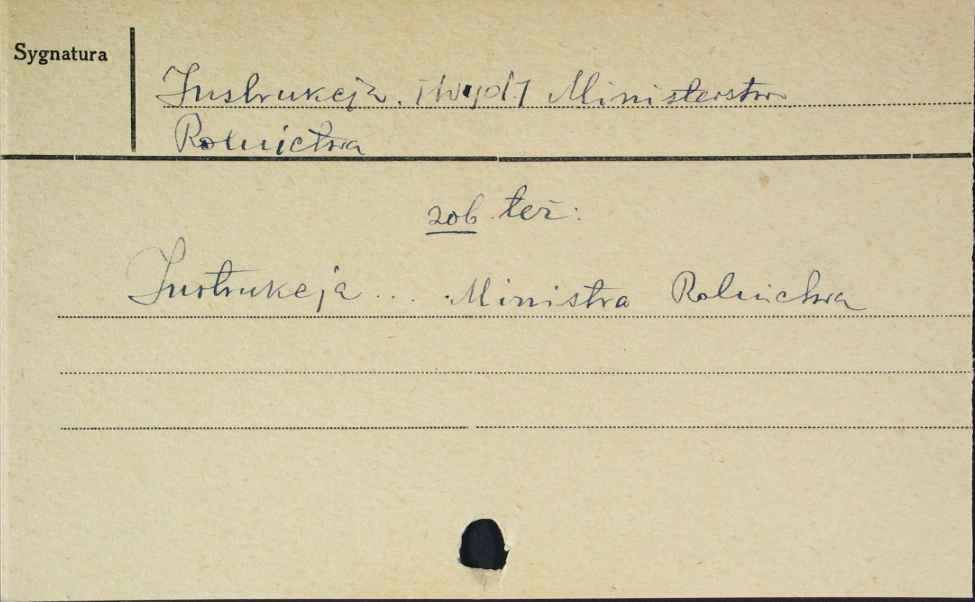 Sygnatura
Instrukcja. [wyd] Ministerstwo
Rolnictwa
zob. też:
Instrukcja ... Ministra Rolnictwa